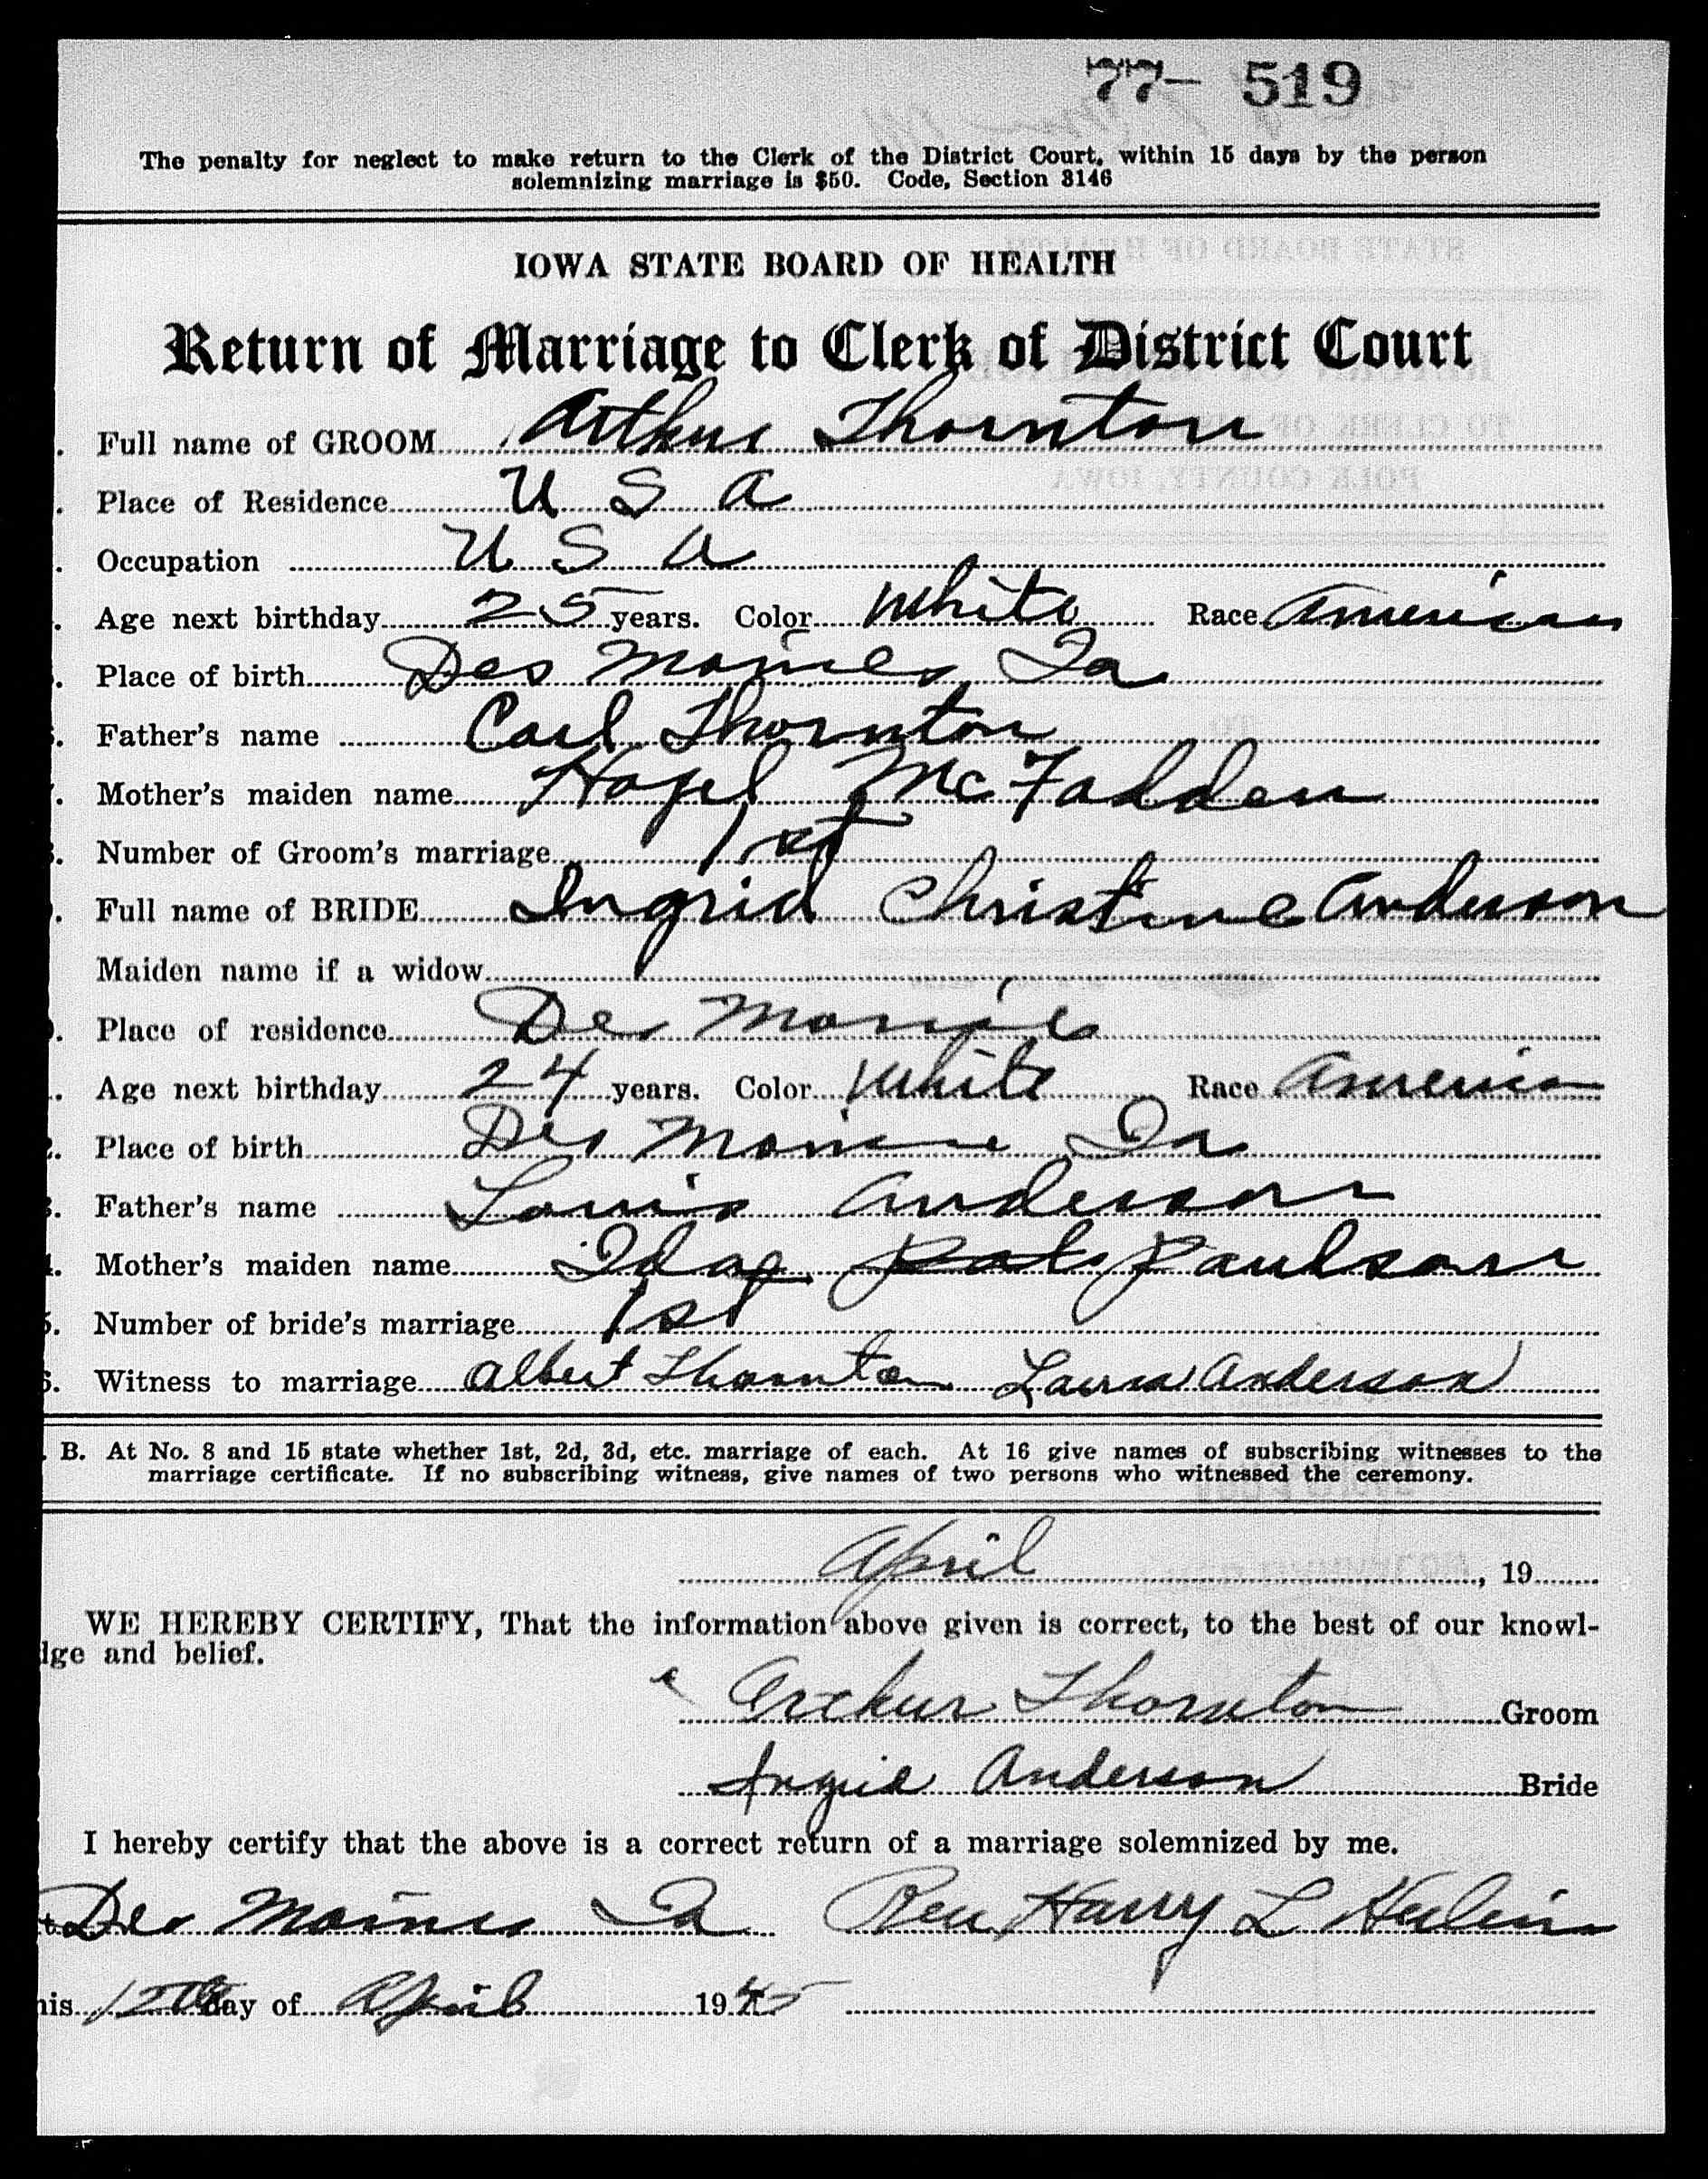 77- 519
The penalty for neglect to make return to the Clerk of the District Court, within 15 days by the person
solemnizing marriage is $50. Code, Section 3146
IOWA STATE BOARD OF HEALTH
Return of Marriage to Clerk of District Court
. Full name of GROOM Arthur Thornton
. Place of Residence U S A
. Occupation U S A
. Age next birthday 25 years. Color White Race American
. Place of birth Des Moines Ia
. Father's name Carl Thornton
. Mother's maiden name Hazel McFadden
. Number of Groom's marriage 1st
. Full name of BRIDE Ingrid Christine Anderson
Maiden name if a widow
. Place of residence Des Moines
. Age next birthday 24 years. Color White Race America
. Place of birth Des Moines Ia
. Father's name Louis Anderson
. Mother's maiden name Ida Paulson
. Number of bride's marriage 1st
. Witness to marriage Albert Thornton Laura Anderson
. B. At No. 8 and 15 state whether 1st, 2d, 3d, etc. marriage of each. At 16 give names of subscribing witnesses to the
marriage certificate. If no subscribing witness, give names of two persons who witnessed the ceremony.
April , 19
WE HEREBY CERTIFY, That the information above given is correct, to the best of our knowl-
dge and belief.
Arthur Thornton Groom
Ingrid Anderson Bride
I hereby certify that the above is a correct return of a marriage solemnized by me.
t Des Moines Ia Rev. Harry L
his 12th day of April 1945